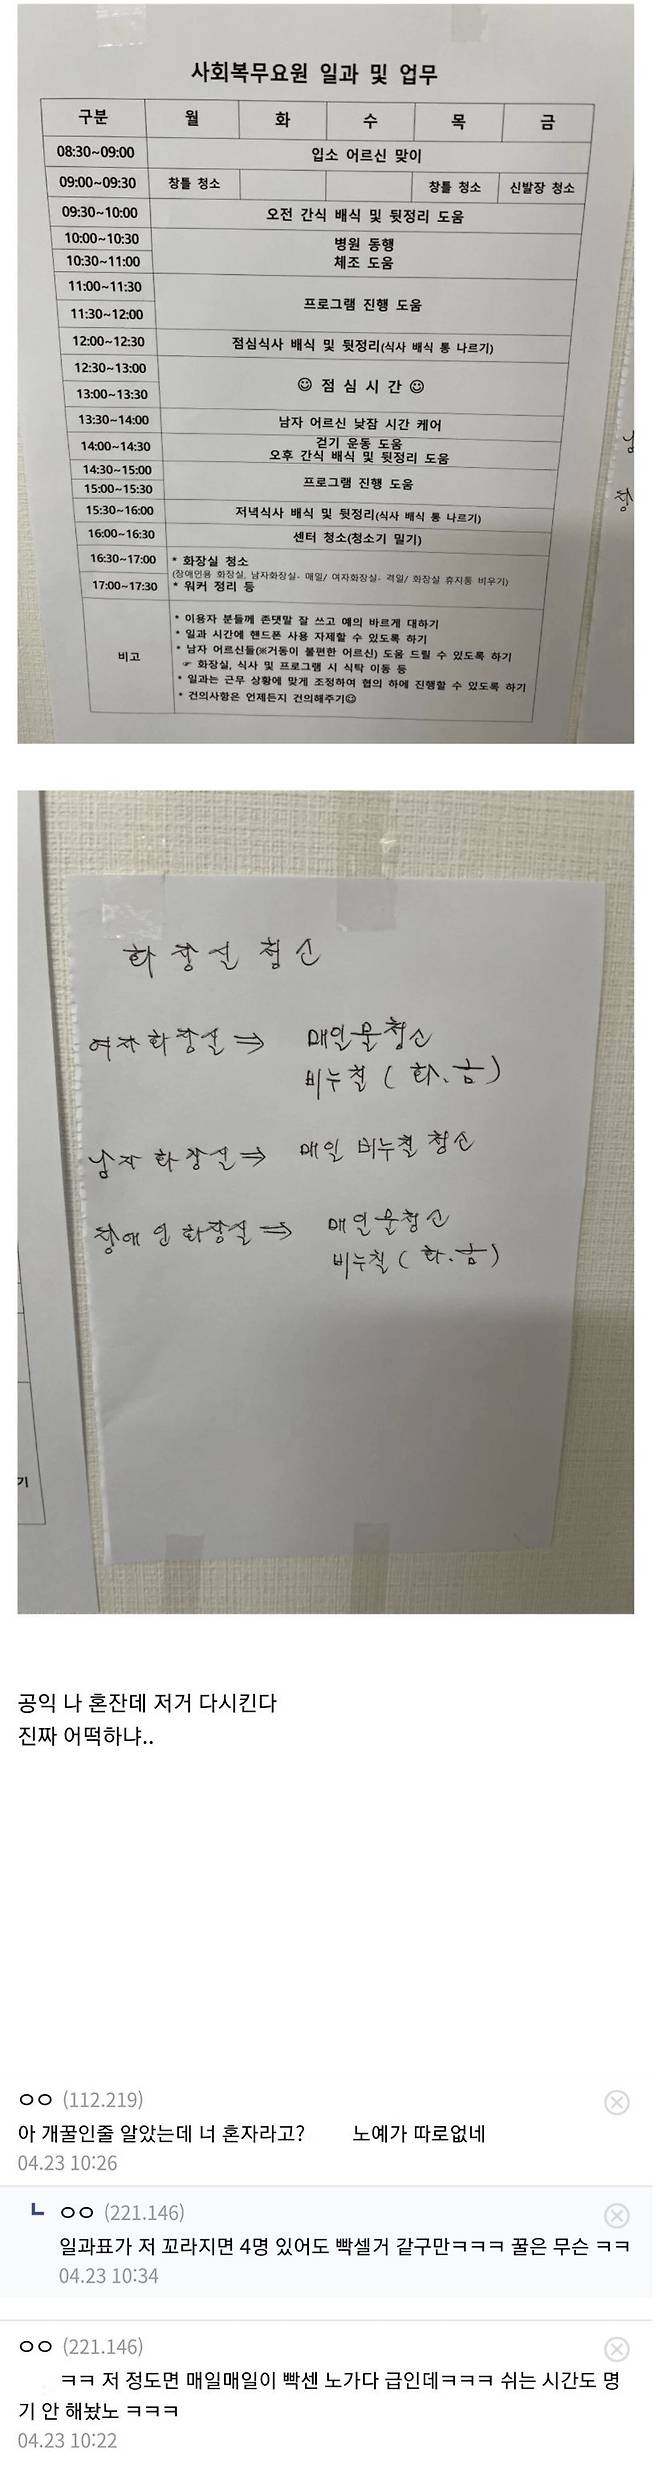 사회복무요원 일과 및 업무
구분 월 화 수 목 금
08:30~09:00 입소 어르신 맞이
09:00~09:30 창틀 청소 창틀 청소 신발장 청소
09:30~10:00 오전 간식 배식 및 뒷정리 도움
10:00~10:30 병원 동행
10:30~11:00 체조 도움
11:00~11:30
프로그램 진행 도움
11:30~12:00
12:00~12:30 점심식사 배식 및 뒷정리(식사 배식 통 나르기)
12:30~13:00
☺ 점 심 시 간 ☺
13:00~13:30
13:30~14:00 남자 어르신 낮잠 시간 케어
14:00~14:30 걷기 운동 도움
오후 간식 배식 및 뒷정리 도움
14:30~15:00
프로그램 진행 도움
15:00~15:30
15:30~16:00 저녁식사 배식 및 뒷정리(식사 배식 통 나르기)
16:00~16:30 센터 청소(청소기 밀기)
16:30~17:00 * 화장실 청소
(장애인용 화장실, 남자화장실- 매일/ 여자화장실- 격일/ 화장실 휴지통 비우기)
17:00~17:30 * 워커 정리 등
비고
* 이용자 분들께 존댓말 잘 쓰고 예의 바르게 대하기
* 일과 시간에 핸드폰 사용 자제할 수 있도록 하기
* 남자 어르신들(※거동이 불편한 어르신) 도움 드릴 수 있도록 하기
☞ 화장실, 식사 및 프로그램 시 식탁 이동 등
* 일과는 근무 상황에 맞게 조정하여 협의 하에 진행할 수 있도록 하기
* 건의사항은 언제든지 건의해주기☺
남
장
화장실 청소
여자화장실 ⇒ 매일물청소
비누칠 (화.금)
남자 화장실 ⇒ 매일 비누칠 청소
장애인 화장실 ⇒ 매일물청소
비누칠 (화.금)
기
공익 나 혼잔데 저거 다시킨다
진짜 어떡하냐..
ㅇㅇ (112.219)
아 개꿀인줄 알았는데 너 혼자라고? 노예가 따로없네
04.23 10:26
ㅇㅇ (221.146)
일과표가 저 꼬라지면 4명 있어도 빡셀거 같구만ㅋㅋㅋ 꿀은 무슨 ㅋㅋ
04.23 10:34
ㅇㅇ (221.146)
ㅋㅋ 저 정도면 매일매일이 빡센 노가다 급인데ㅋㅋㅋ 쉬는 시간도 명
기 안 해놨노 ㅋㅋㅋ
04.23 10:22